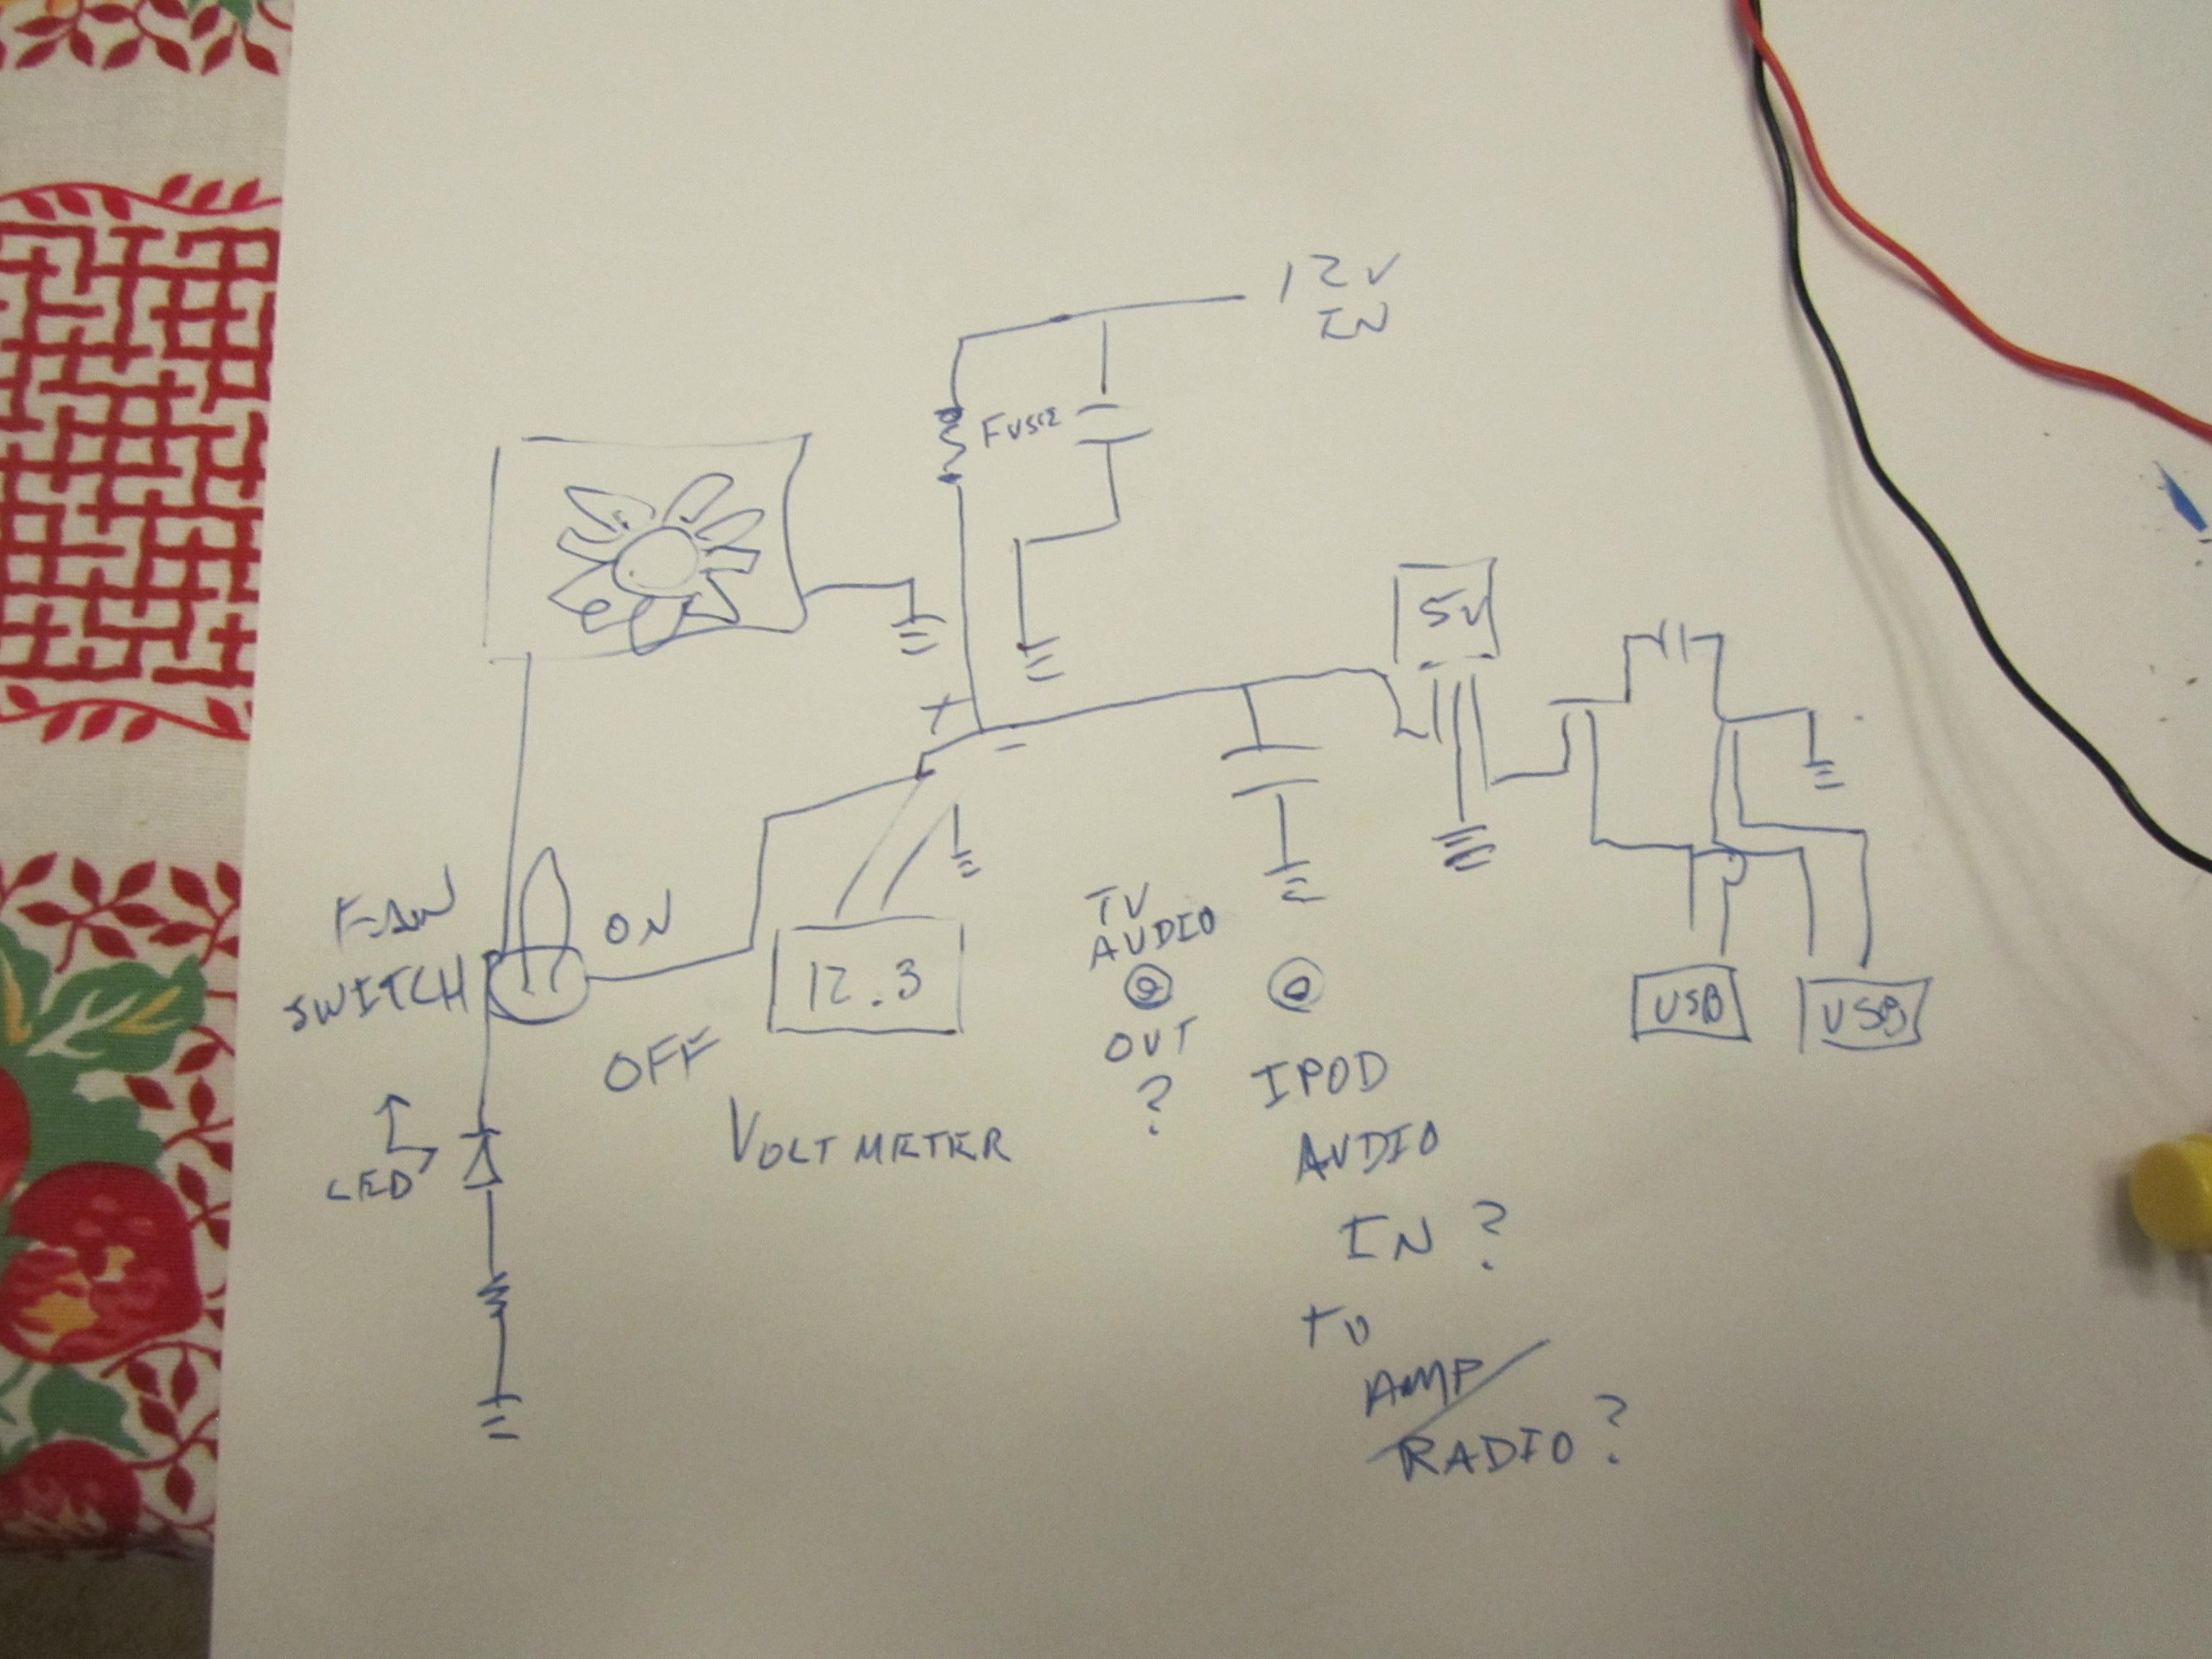 12V
IN
FUSE
5V
+
-
FAN
SWITCH
ON
OFF
12.3
VOLTMETER
LED
TV
AUDIO
OUT
?
IPOD
AUDIO
IN ?
TO
AMP/
RADIO?
USB
USB